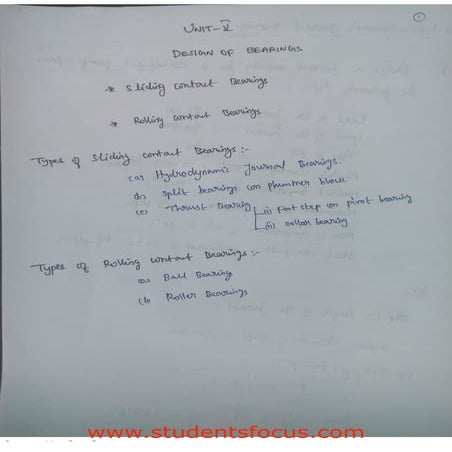 1
UNIT-V
DESIGN OF BEARINGS
* Sliding contact Bearings
* Rolling contact Bearings
Types of Sliding contact Bearings :-
(a) Hydrodynamic Journal Bearings.
(b) split bearings (or) plummer block
(c) Thrust Bearing (i) Foot step (or) pivot bearing
(ii) collar bearing
Types of Rolling contact Bearings :-
(a) Ball Bearing
(b) Roller Bearings
www.studentsfocus.com